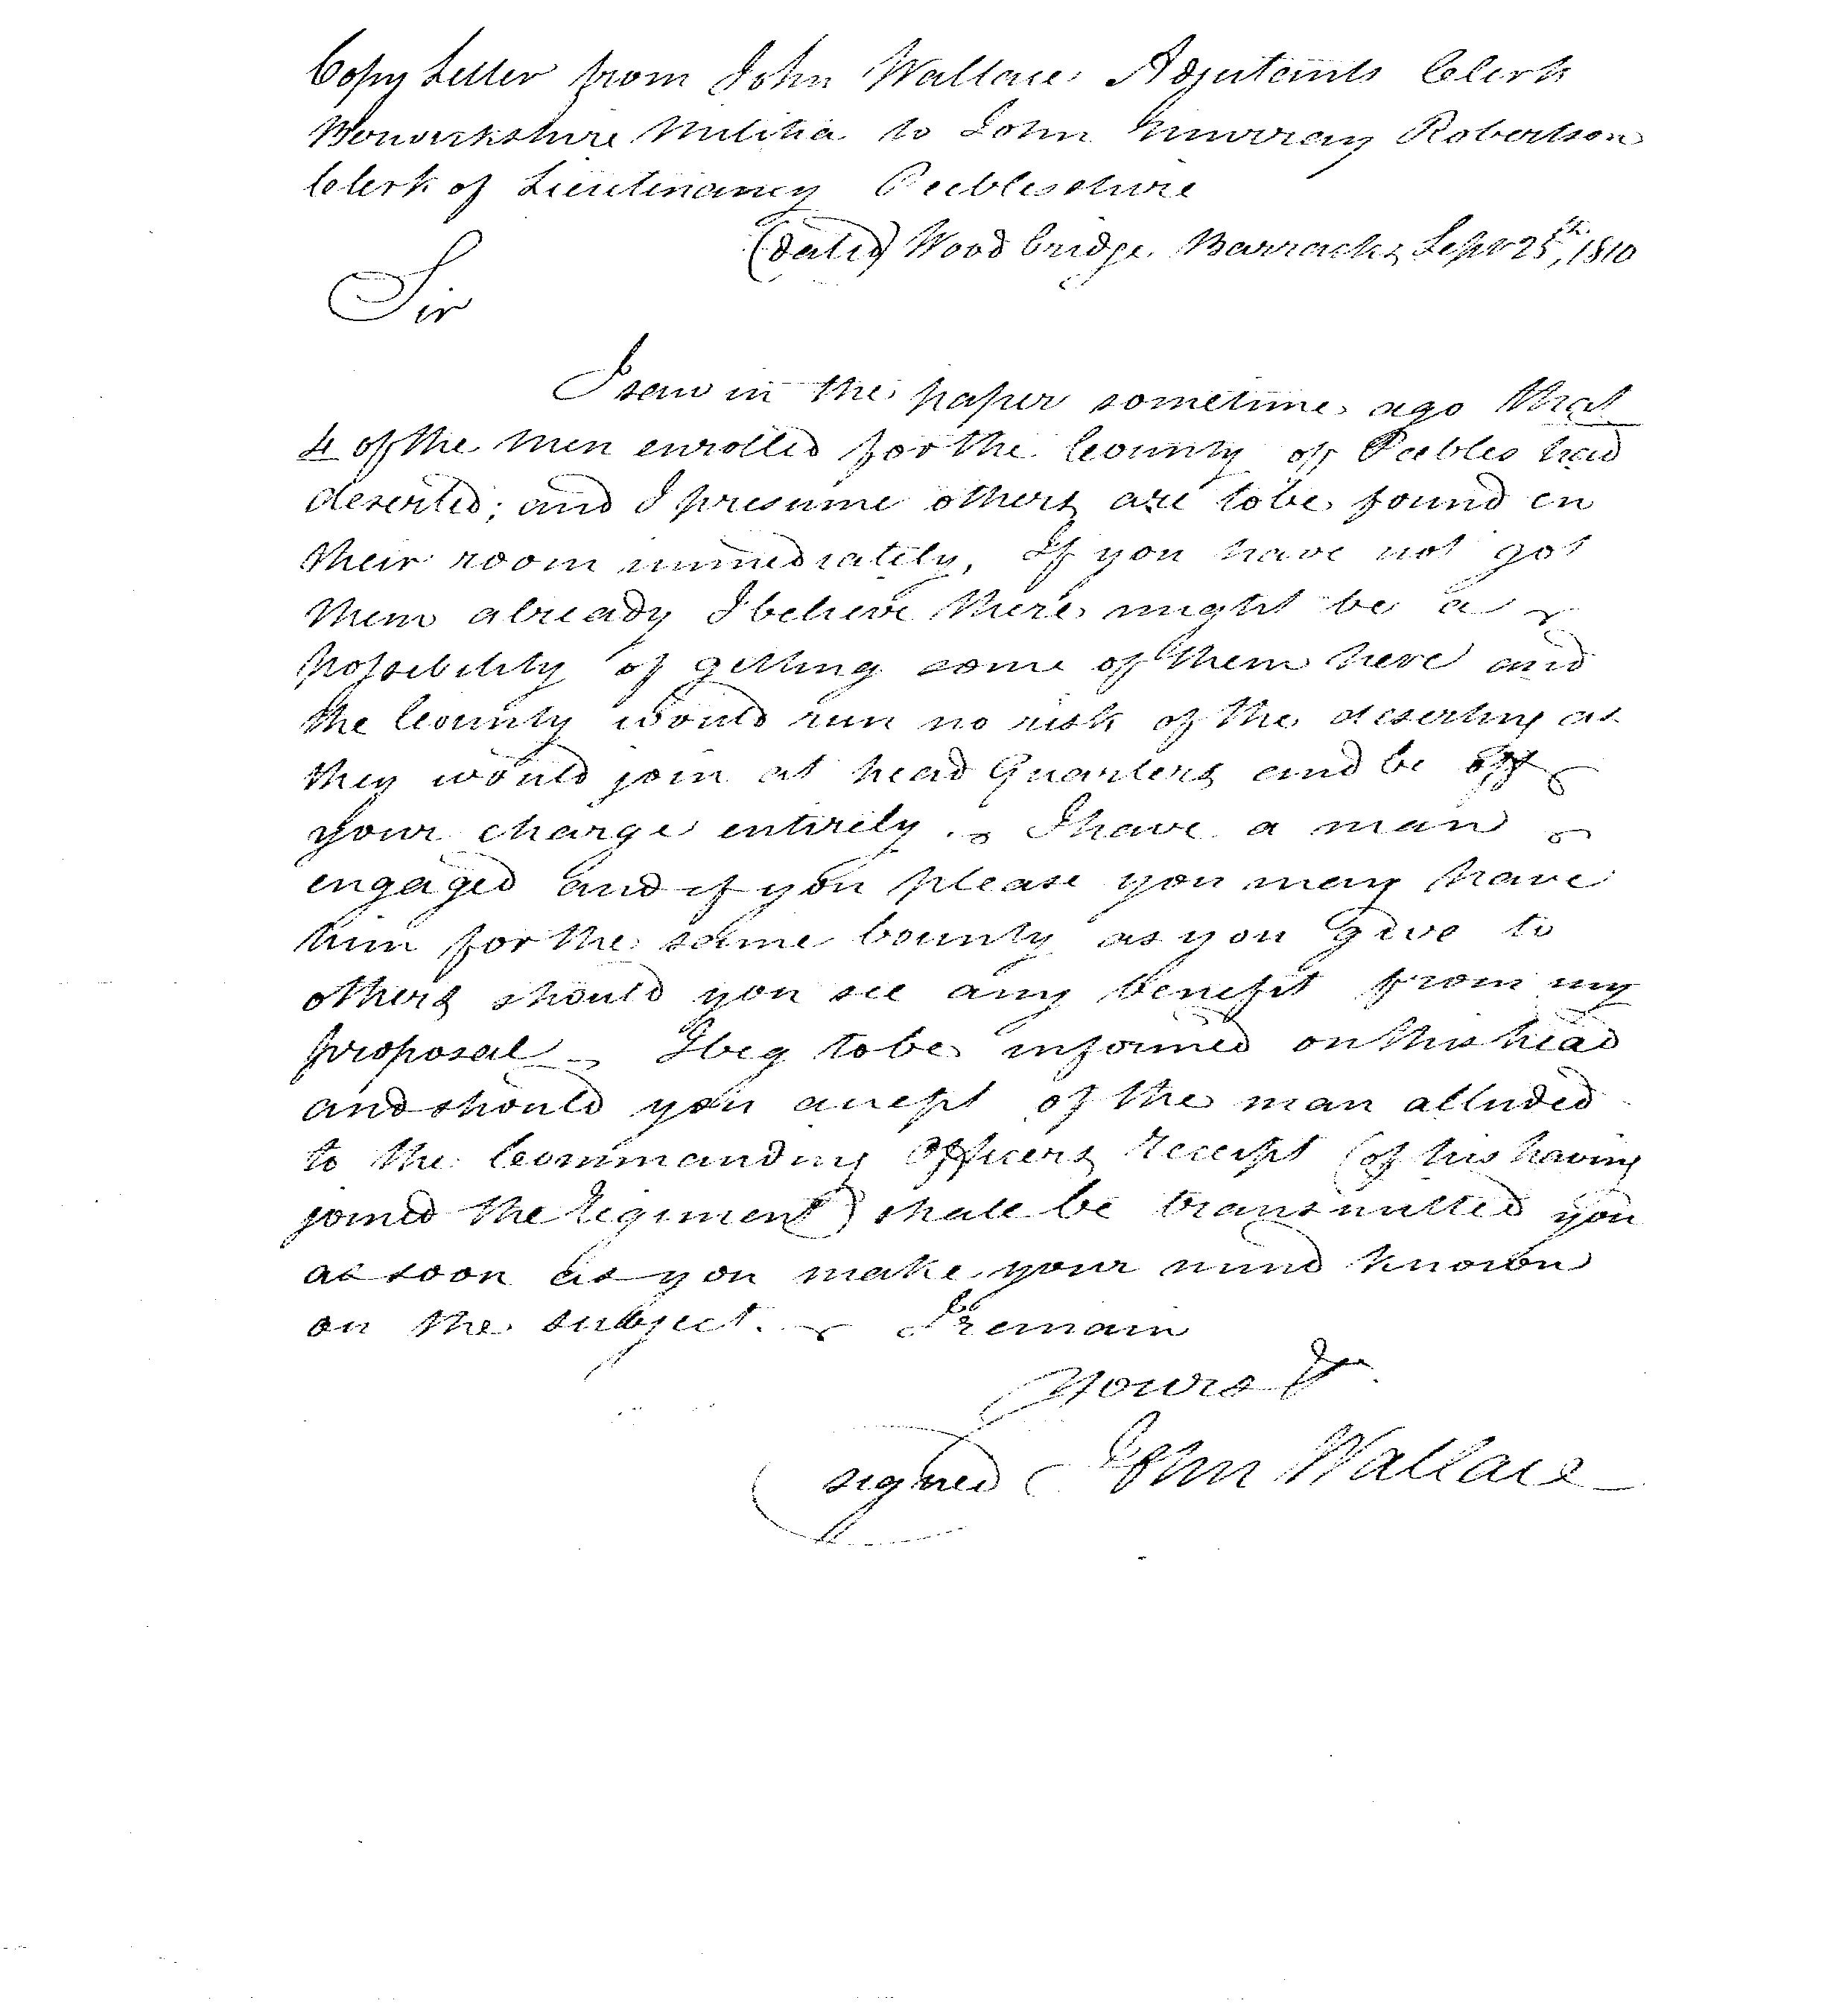 Copy Letter from John Wallace Adjutants Clerk
Berwickshire Militia to John Murray Robertson
Clerk of Lieutenancy Peeblesshire
(dated) Woodbridge Barracks Septr 25th, 1810
Sir
I saw in the paper sometime ago that
4 of the men enrolled for the County of Peebles had
deserted; and I presume others are to be found in
their room immediately, If you have not got
them already I believe there might be a
possibility of getting some of them here and
the County would run no risk of the deserting as
they would join at head Quarters and be off
your charge entirely. I have a man
engaged and if you please you may have
him for the same bounty as you give to
others should you see any benefit from my
proposal – I beg to be informed on this head
and should you accept of the man alluded
to the Commanding Officers receipt (of his having
joined the regiment) shall be transmitted you
as soon as you make your mind known
on the subject. – I remain
Yours &c
signed John Wallace